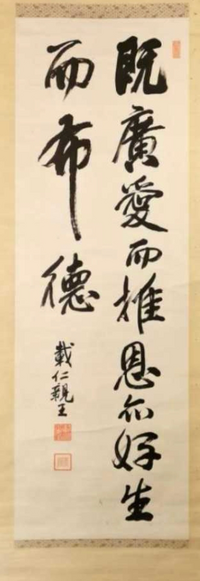 既廣愛而推恩亦好生
而布德
載仁親王